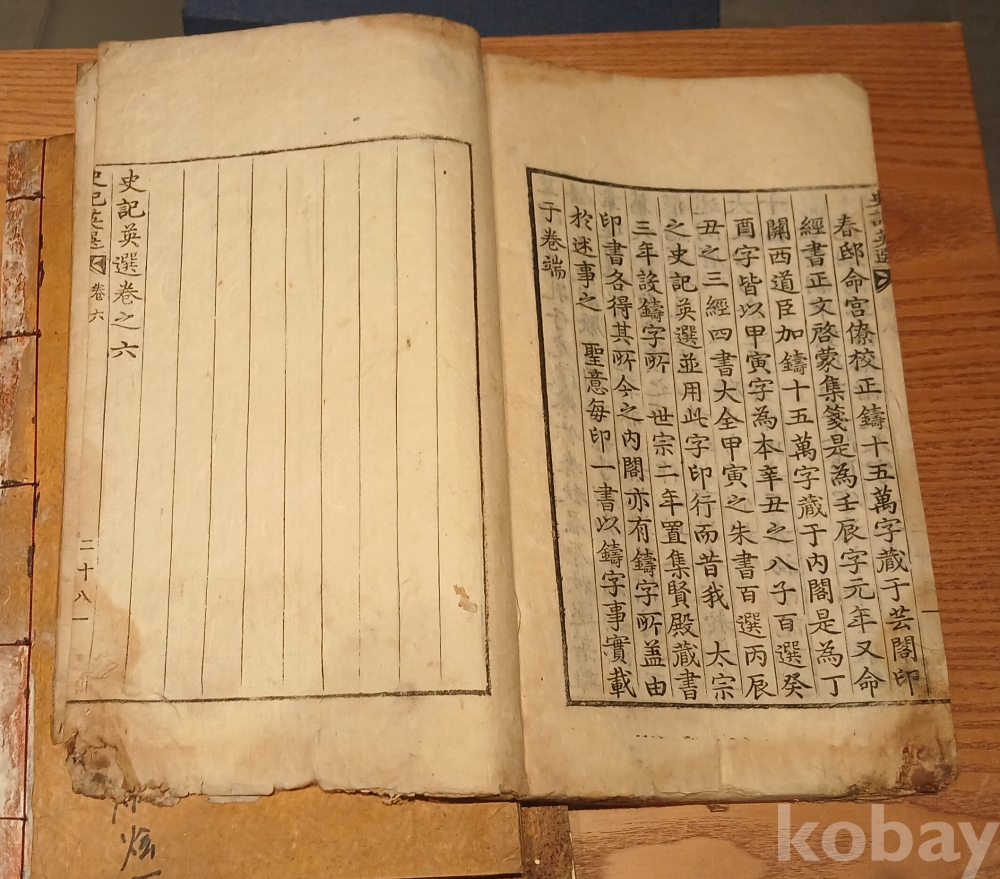 史記英選
一
春邸命宮僚校正鑄十五萬字藏于芸閣印
經書正文啓蒙集箋是為壬辰字元年又命
關西道臣加鑄十五萬字藏于內閣是為丁
酉字皆以甲寅字為本辛丑之八子百選癸
丑之三經四書大全甲寅之朱書百選丙辰
之史記英選並用此字印行而昔我 太宗
三年設鑄字所 世宗二年置集賢殿藏書
印書各得其所今之內閣亦有鑄字所盖由
於述事之 聖意每印一書以鑄字事實載
于卷端
史記英選卷之六
史記英選 卷六 二十八
kobay